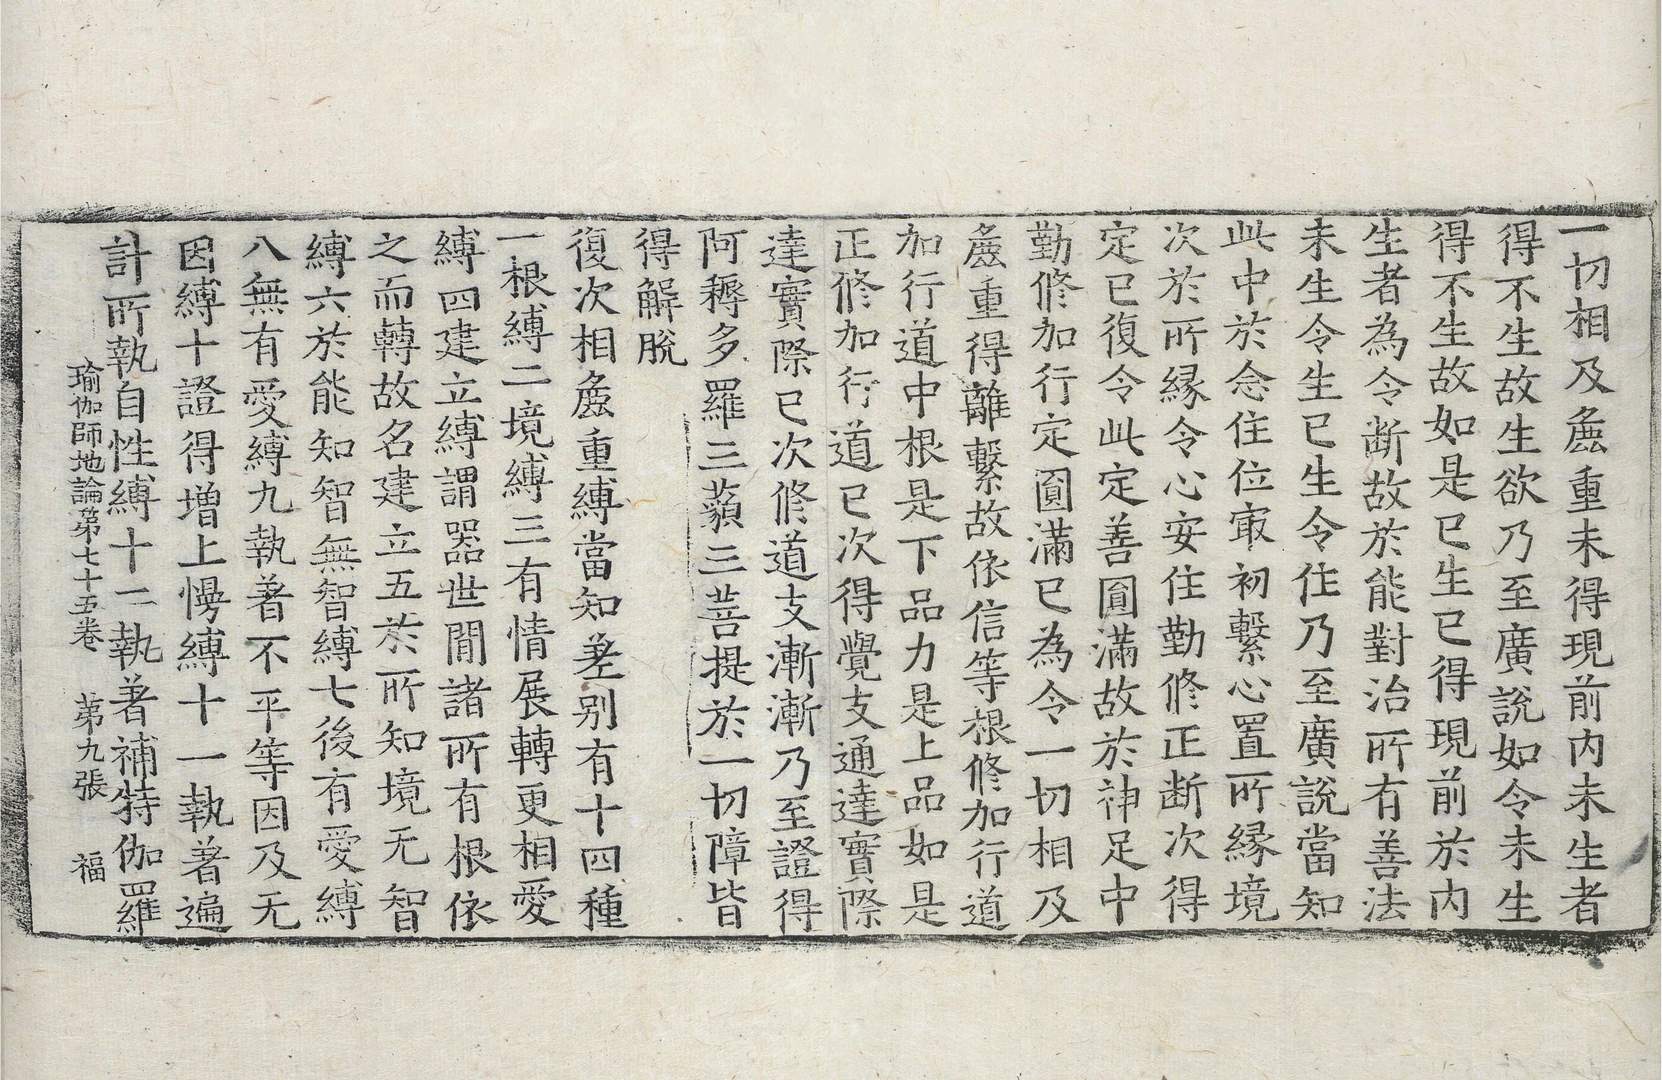 一切相及麁重未得現前內未生者
得不生故生欲乃至廣說如令未生
得不生故如是已生已得現前於內
生者為令斷故於能對治所有善法
未生令生已生令住乃至廣說當知
此中於念住位寂初繫心置所縁境
次於所縁令心安住勤修正斷次得
定已復令此定善圓滿故於神足中
勤修加行定圓滿已為令一切相及
麁重得離繫故依信等根修加行道
加行道中根是下品力是上品如是
正修加行道已次得覺支通達實際
達實際已次修道支漸漸乃至證得
阿耨多羅三藐三菩提於一切障皆
得解脫
復次相麁重縛當知差别有十四種
一根縛二境縛三有情展轉更相愛
縛四建立縛謂器世間諸所有根依
之而轉故名建立五於所知境无智
縛六於能知智無智縛七後有愛縛
八無有愛縛九執著不平等因及无
因縛十證得增上慢縛十一執著遍
計所執自性縛十二執著補特伽羅
瑜伽師地論第七十五卷　第九張　福